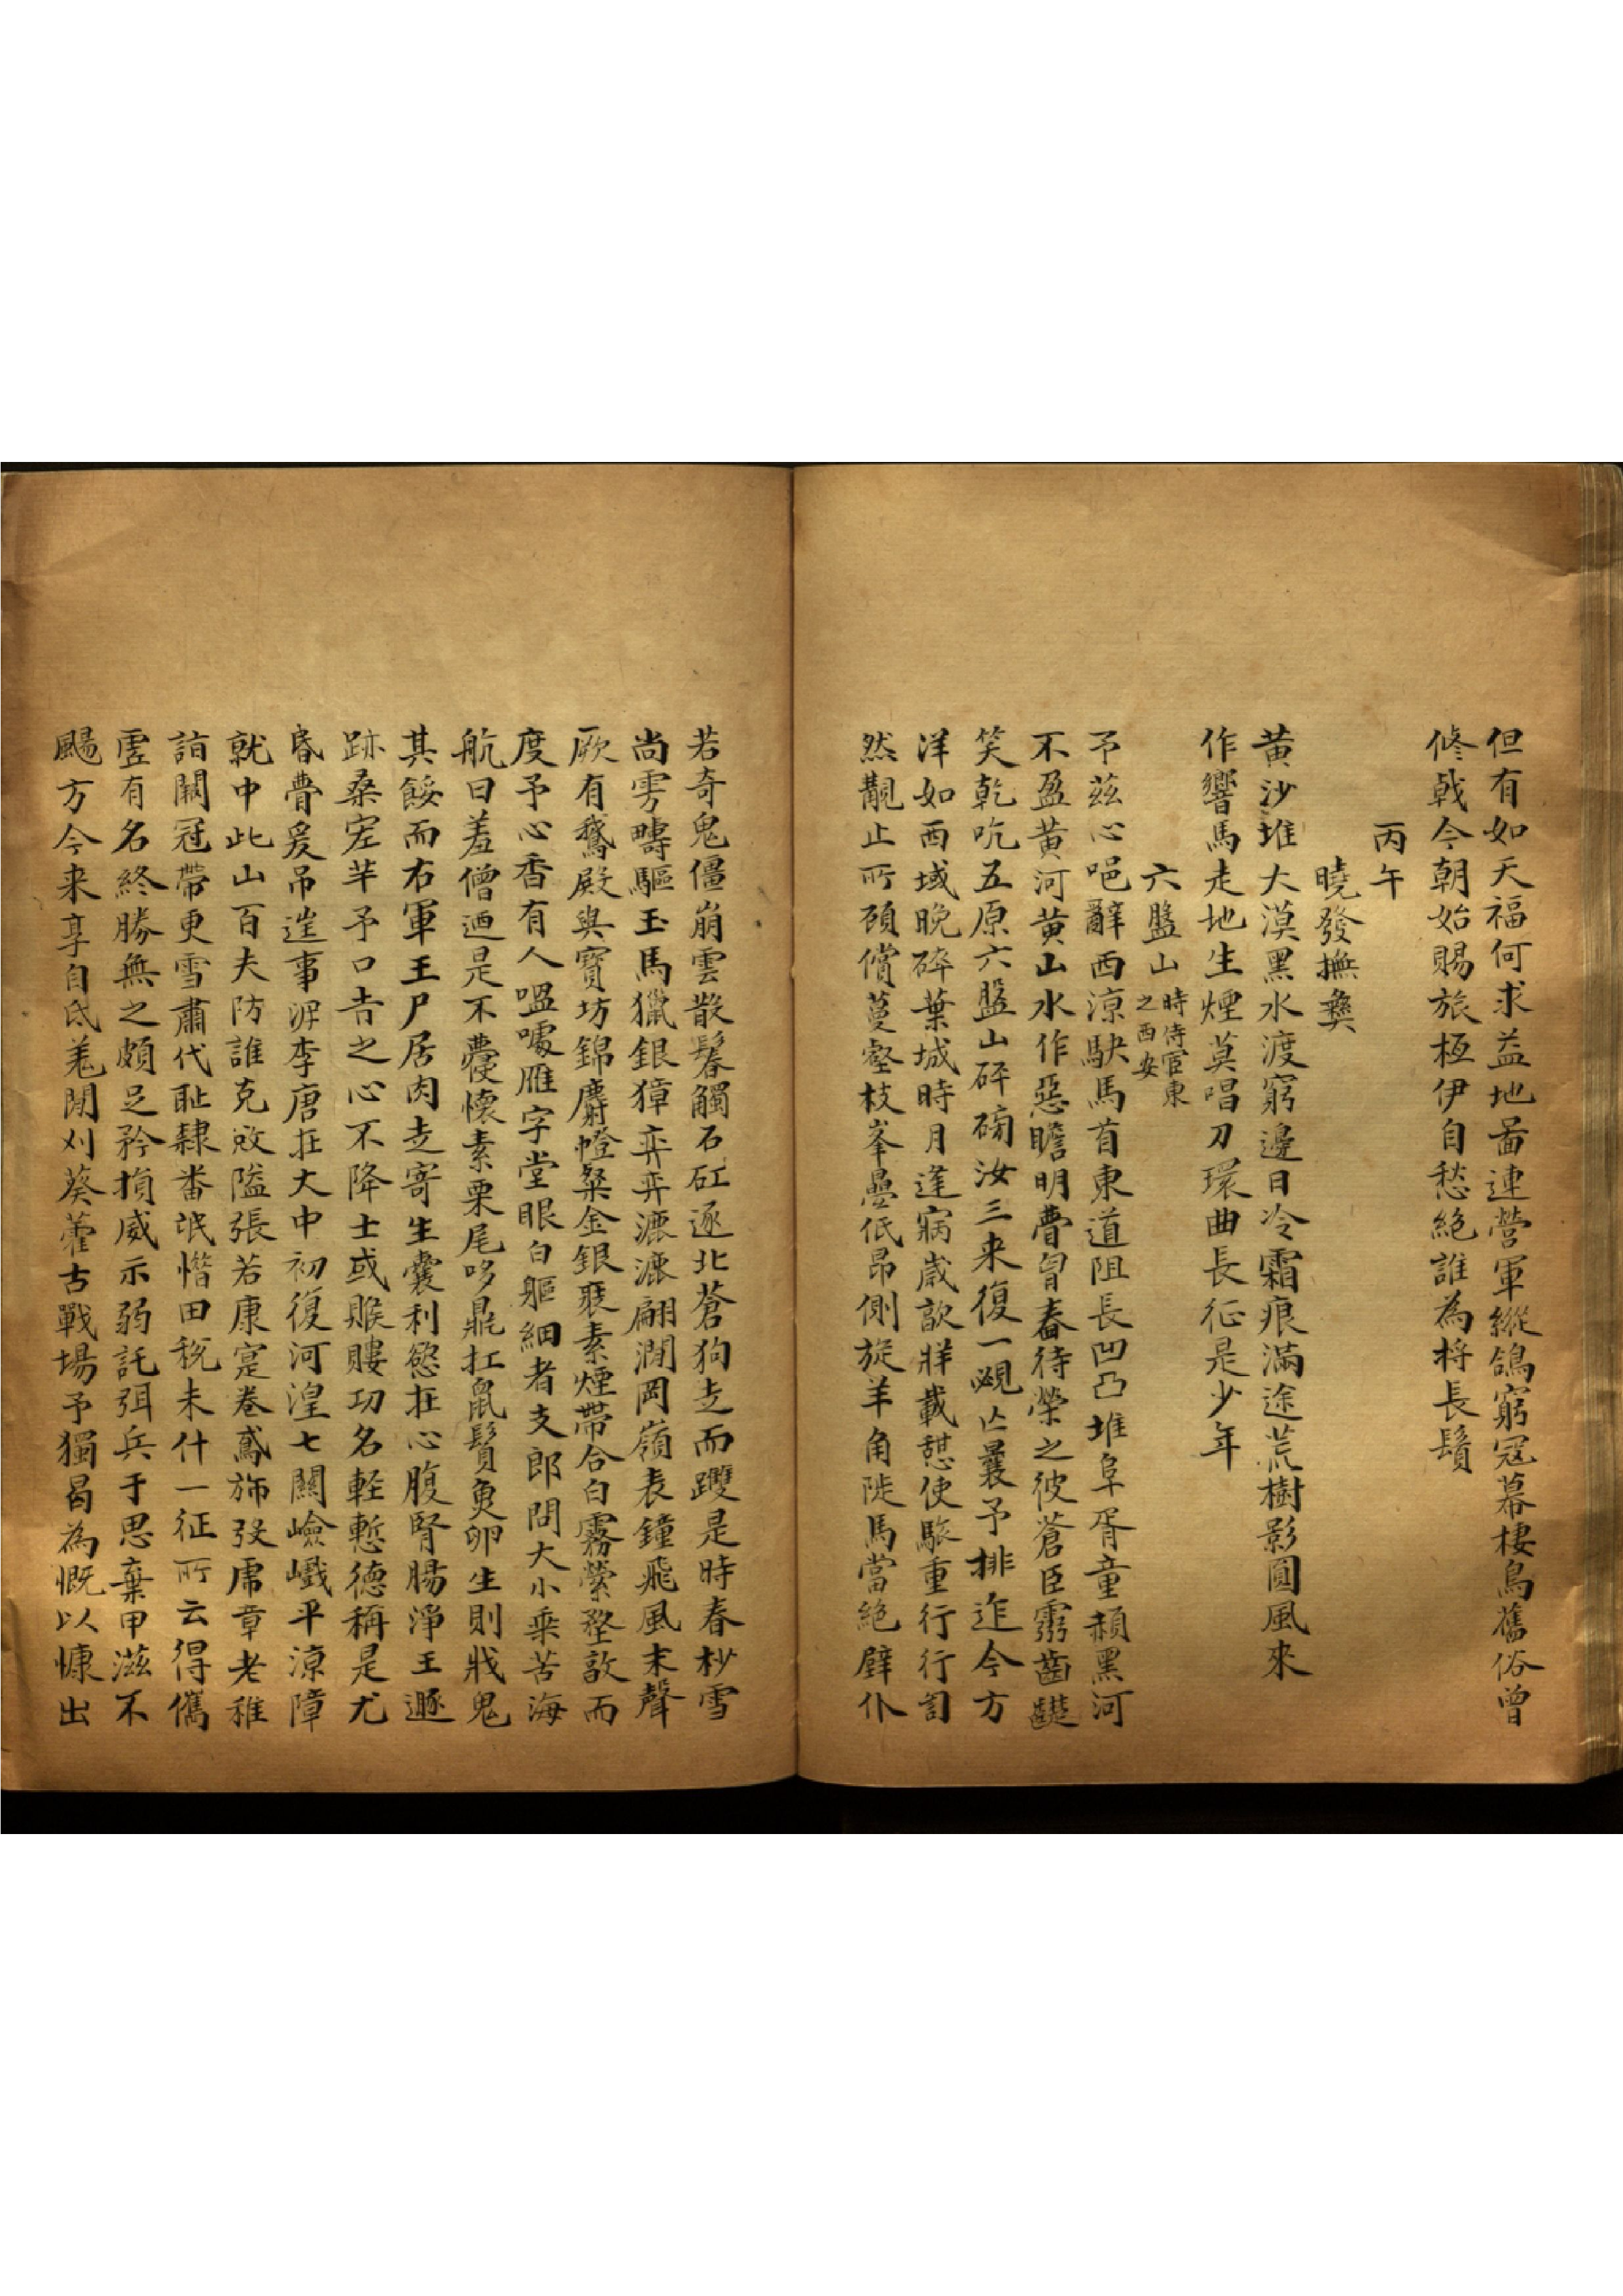 但有如天福何求益地啚連營軍縱鴿窮冦幕棲烏舊俗曾
修戟今朝始賜旅極伊自愁絕誰為將長鬚
丙午
曉發撫彝
黃沙堆大漠黑水渡窮邊日冷霜痕滿途荒樹影圓風來
作響馬走地生煙莫唱刀環曲長征是少年
六盤山時侍宦東之西安
予茲心唈辭西涼駃馬首東道阻長凹凸堆阜胥童赬黑河
不盈黃河黃山水作惡瞻明瞢冒春待榮之彼蒼臣霛齒齼
笑乾吭五原六盤山碎硇汝三来復一覕亾曩予排迮今方
洋如西域晚碎葉城時月逢寎歲歆牂載憇使驂重行行訇
然觀止所碩償蔓壑枝峯疊低昂側旋羊角陡馬當絶壁仆
若奇鬼僵崩雲散鬊觸石矼逐北蒼狗走而躩是時春杪雪
尚雱疇驅玉馬獵銀獐弈弈漉漉翩澗岡嶺表鐘飛風末聲
厥有鵞殿與寶坊錦麝幐粲金銀裹素煙帶合白霧縈堥歆而
度予心香有人嗢噱雁字堂眼白軀細者支郎問大小乘苦海
航曰羞僧迺是不蘷懷素栗尾哆鼎扛鼠鬚奐卵生則戕鬼
其餒而右軍王尸居肉走寄生囊利慾在心腹腎腸淨王遯
跡桑宏芋予口吿之心不降士或賕賕功名輕慙德稱是尤
昏瞢爰吊逞事浉李唐在大中初復河湟七關嶮巇平涼障
就中此山百夫防誰克敀隘張若康寔卷鳶斾发虎章老稚
詣闕冠帶更雪肅代恥隸畨氓懵田稅未什一征所云得儁
虛有名終勝無之頗足矜損威示弱託弭兵于思棄甲滋不
颺方今来享自氐羗閒刈葵藿古戰場予獨曷為慨以慷出